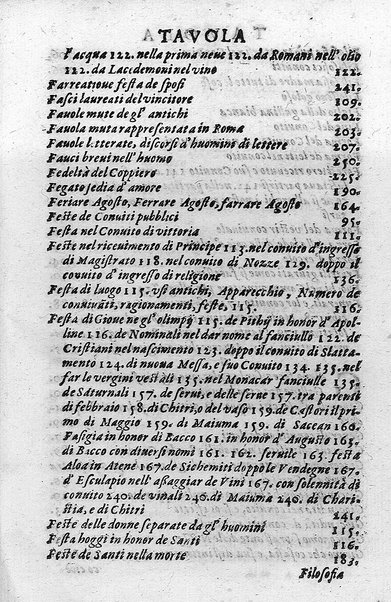 TAVOLA
l'acqua 122. nella prima neue 122. da Romani nell'olio
122. da Lacedemoni nel vino 122.
Farreatioue festa de sposi 241.
Fasci laureati del vincitore 109.
Fauole mute de gl' antichi 202.
Fauola muta rappresentata in Roma 203.
Fauole l.tterate, discorsi d'huomini di lettere 207.
Fauci breui nell'huomo 250.
Fedeltà del Coppiero 225.
Fegato sedia d'amore 190.
Feriare Agosto, Ferrare Agosto, farrare Agosto 164.
Feste de Conuiti publici 95.
Festa nel Conuito di vittoria 111.
Feste nel riceuimento di Principe 113. nel conuito d'ingresso
di Magistrato 118. nel conuito di Nozze 129. doppo il
conuito d'ingresso di religione 136.
Festa di luogo 115. vsi antichi, Apparecchio, Numero de
conuiuati, ragionamenti, feste, 115. 116.
Festa di Gioue ne gl' olimpij 115. de Pithij in honor d' Apol-
line 116. de Nominali nel dar nome al fanciullo 122. de
Cristiani nel nascimento 123. doppo il conuito di Slatta-
mento 124. di nuoua Messa, e suo Conuito 134. 135. nel
far le vergini vestali 135. nel Monacar fanciulle 135.
de Saturnali 157. de serui, e delle serue 157. tra parenti
di febbraio 158. di Chitri, o del vaso 159. de Castori il pri-
mo di Maggio 159. di Maiuma 159. di Sacean 160.
Fasigia in honor di Bacco 161. in honor d' Augusto 165.
di Bacco con diuersi nomi 161. 162. seruile 163. festa
Aloa in Atene 167. de Sichemiti doppo le Vendegne 167.
d' Esculapio nell' assaggiar de Vini 167. con solennità di
conuito 240. de vinali 246. di Maiuma 246. di Chari-
stia, e di Chitri 241.
Feste delle donne separate da gl' huomini 115.
Festa hoggi in honor de Santi 116.
Feste de Santi nella morte 183.
Filosofia